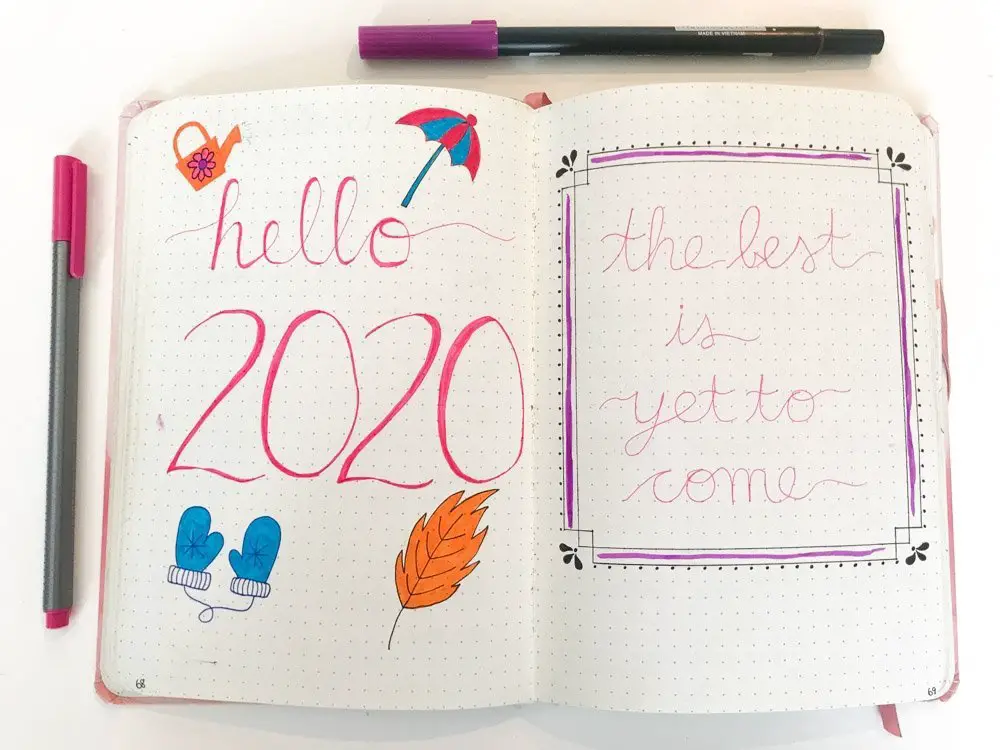 MADE IN VIETNAM
hello
2020
the best
is
yet to
come
68
69